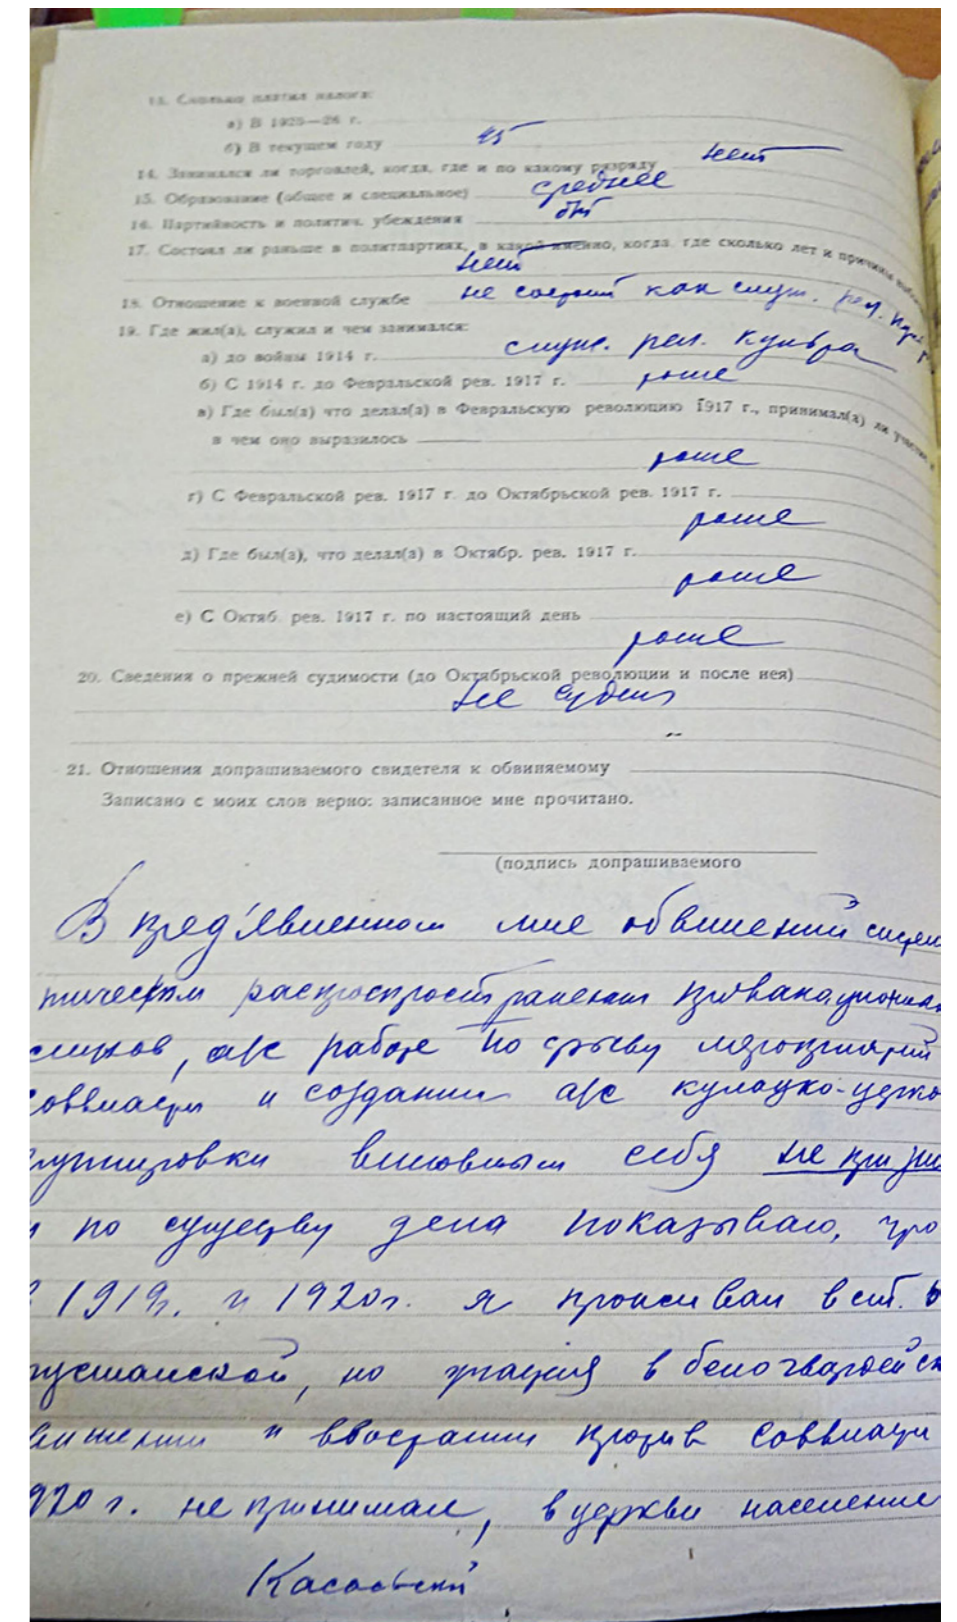 13. Сколько платил налога:
а) В 1925—26 г.
б) В текущем году 45
14. Занимался ли торговлей, когда, где и по какому разряду нет
15. Образование (общее и специальное) среднее
16. Партийность и политич. убеждения б/п
17. Состоял ли раньше в политпартиях, в какой именно, когда, где сколько лет и причины
нет
18. Отношение к военной службе не состоит как служ. рел.
19. Где жил(а), служил и чем занимался:
а) до войны 1914 г. служ. рел. культа
б) С 1914 г. до Февральской рев. 1917 г. тоже
в) Где был(а) что делал(а) в Февральскую революцию 1917 г., принимал(а) ли участие, и
в чем оно выразилось
тоже
г) С Февральской рев. 1917 г. до Октябрьской рев. 1917 г.
тоже
д) Где был(а), что делал(а) в Октябр. рев. 1917 г.
тоже
е) С Октяб. рев. 1917 г. по настоящий день
тоже
20. Сведения о прежней судимости (до Октябрьской революции и после нея)
не судим
21. Отношения допрашиваемого свидетеля к обвиняемому
Записано с моих слов верно: записанное мне прочитано.
(подпись допрашиваемого
В пред'явленном мне обвинении систем
тическом распространении провокационных
слухов, а/с работе по срыву мероприятий
соввласти и создании а/с кулацко-церко
группировки виновным себя не призн
и по существу дела показываю, что
в 1919г. и 1920г. я проживал в ст.
но участия в белогвардейск
движении и восстании против соввласти
1920 г. не принимал, в церкви население